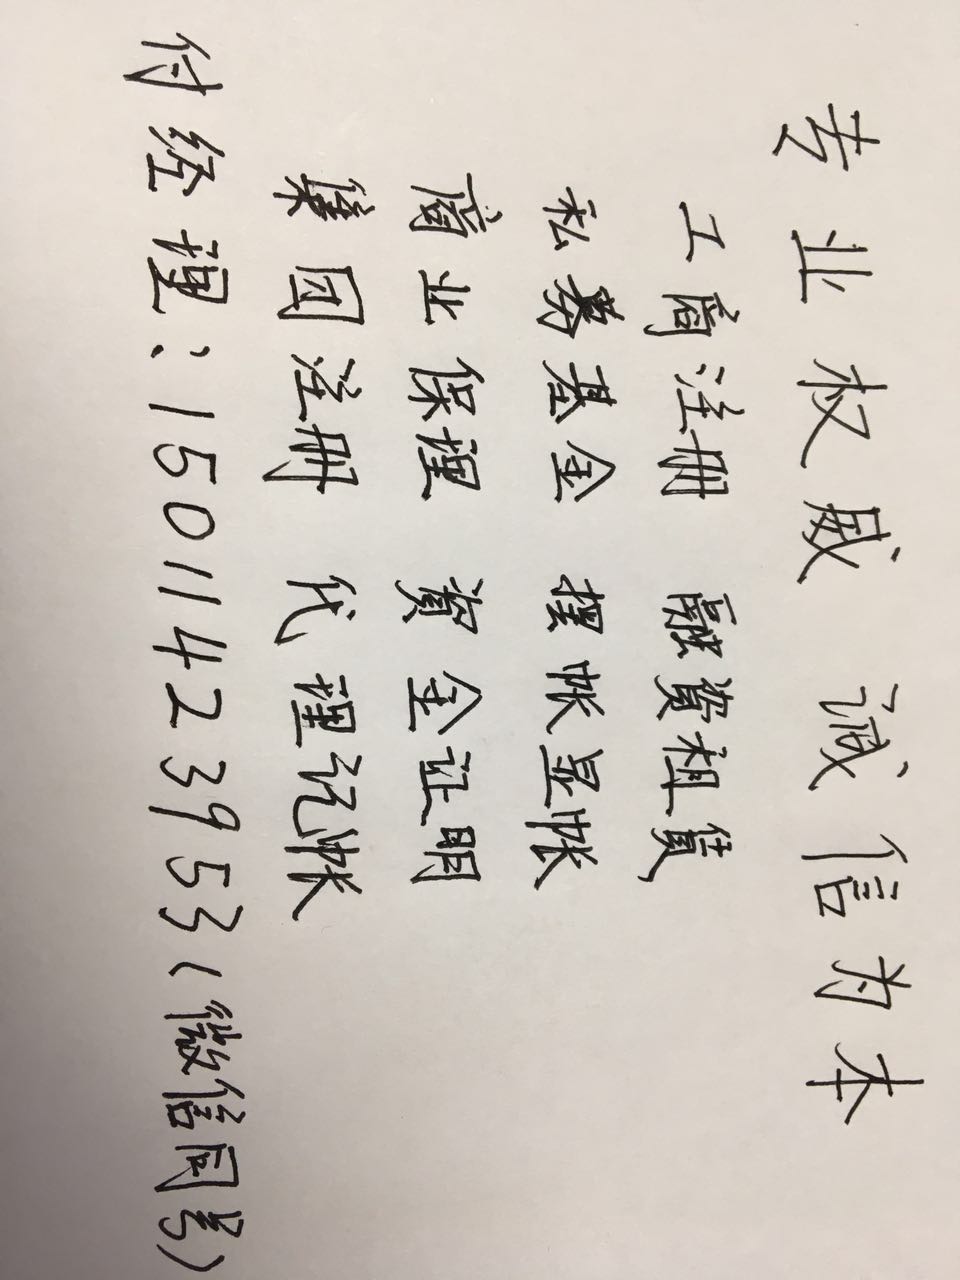 专业权威 诚信为本
工商注册 融资租赁
私募基金 摆帐显帐
商业保理 资金证明
集团注册 代理记帐
付经理:15011423953(微信同号)